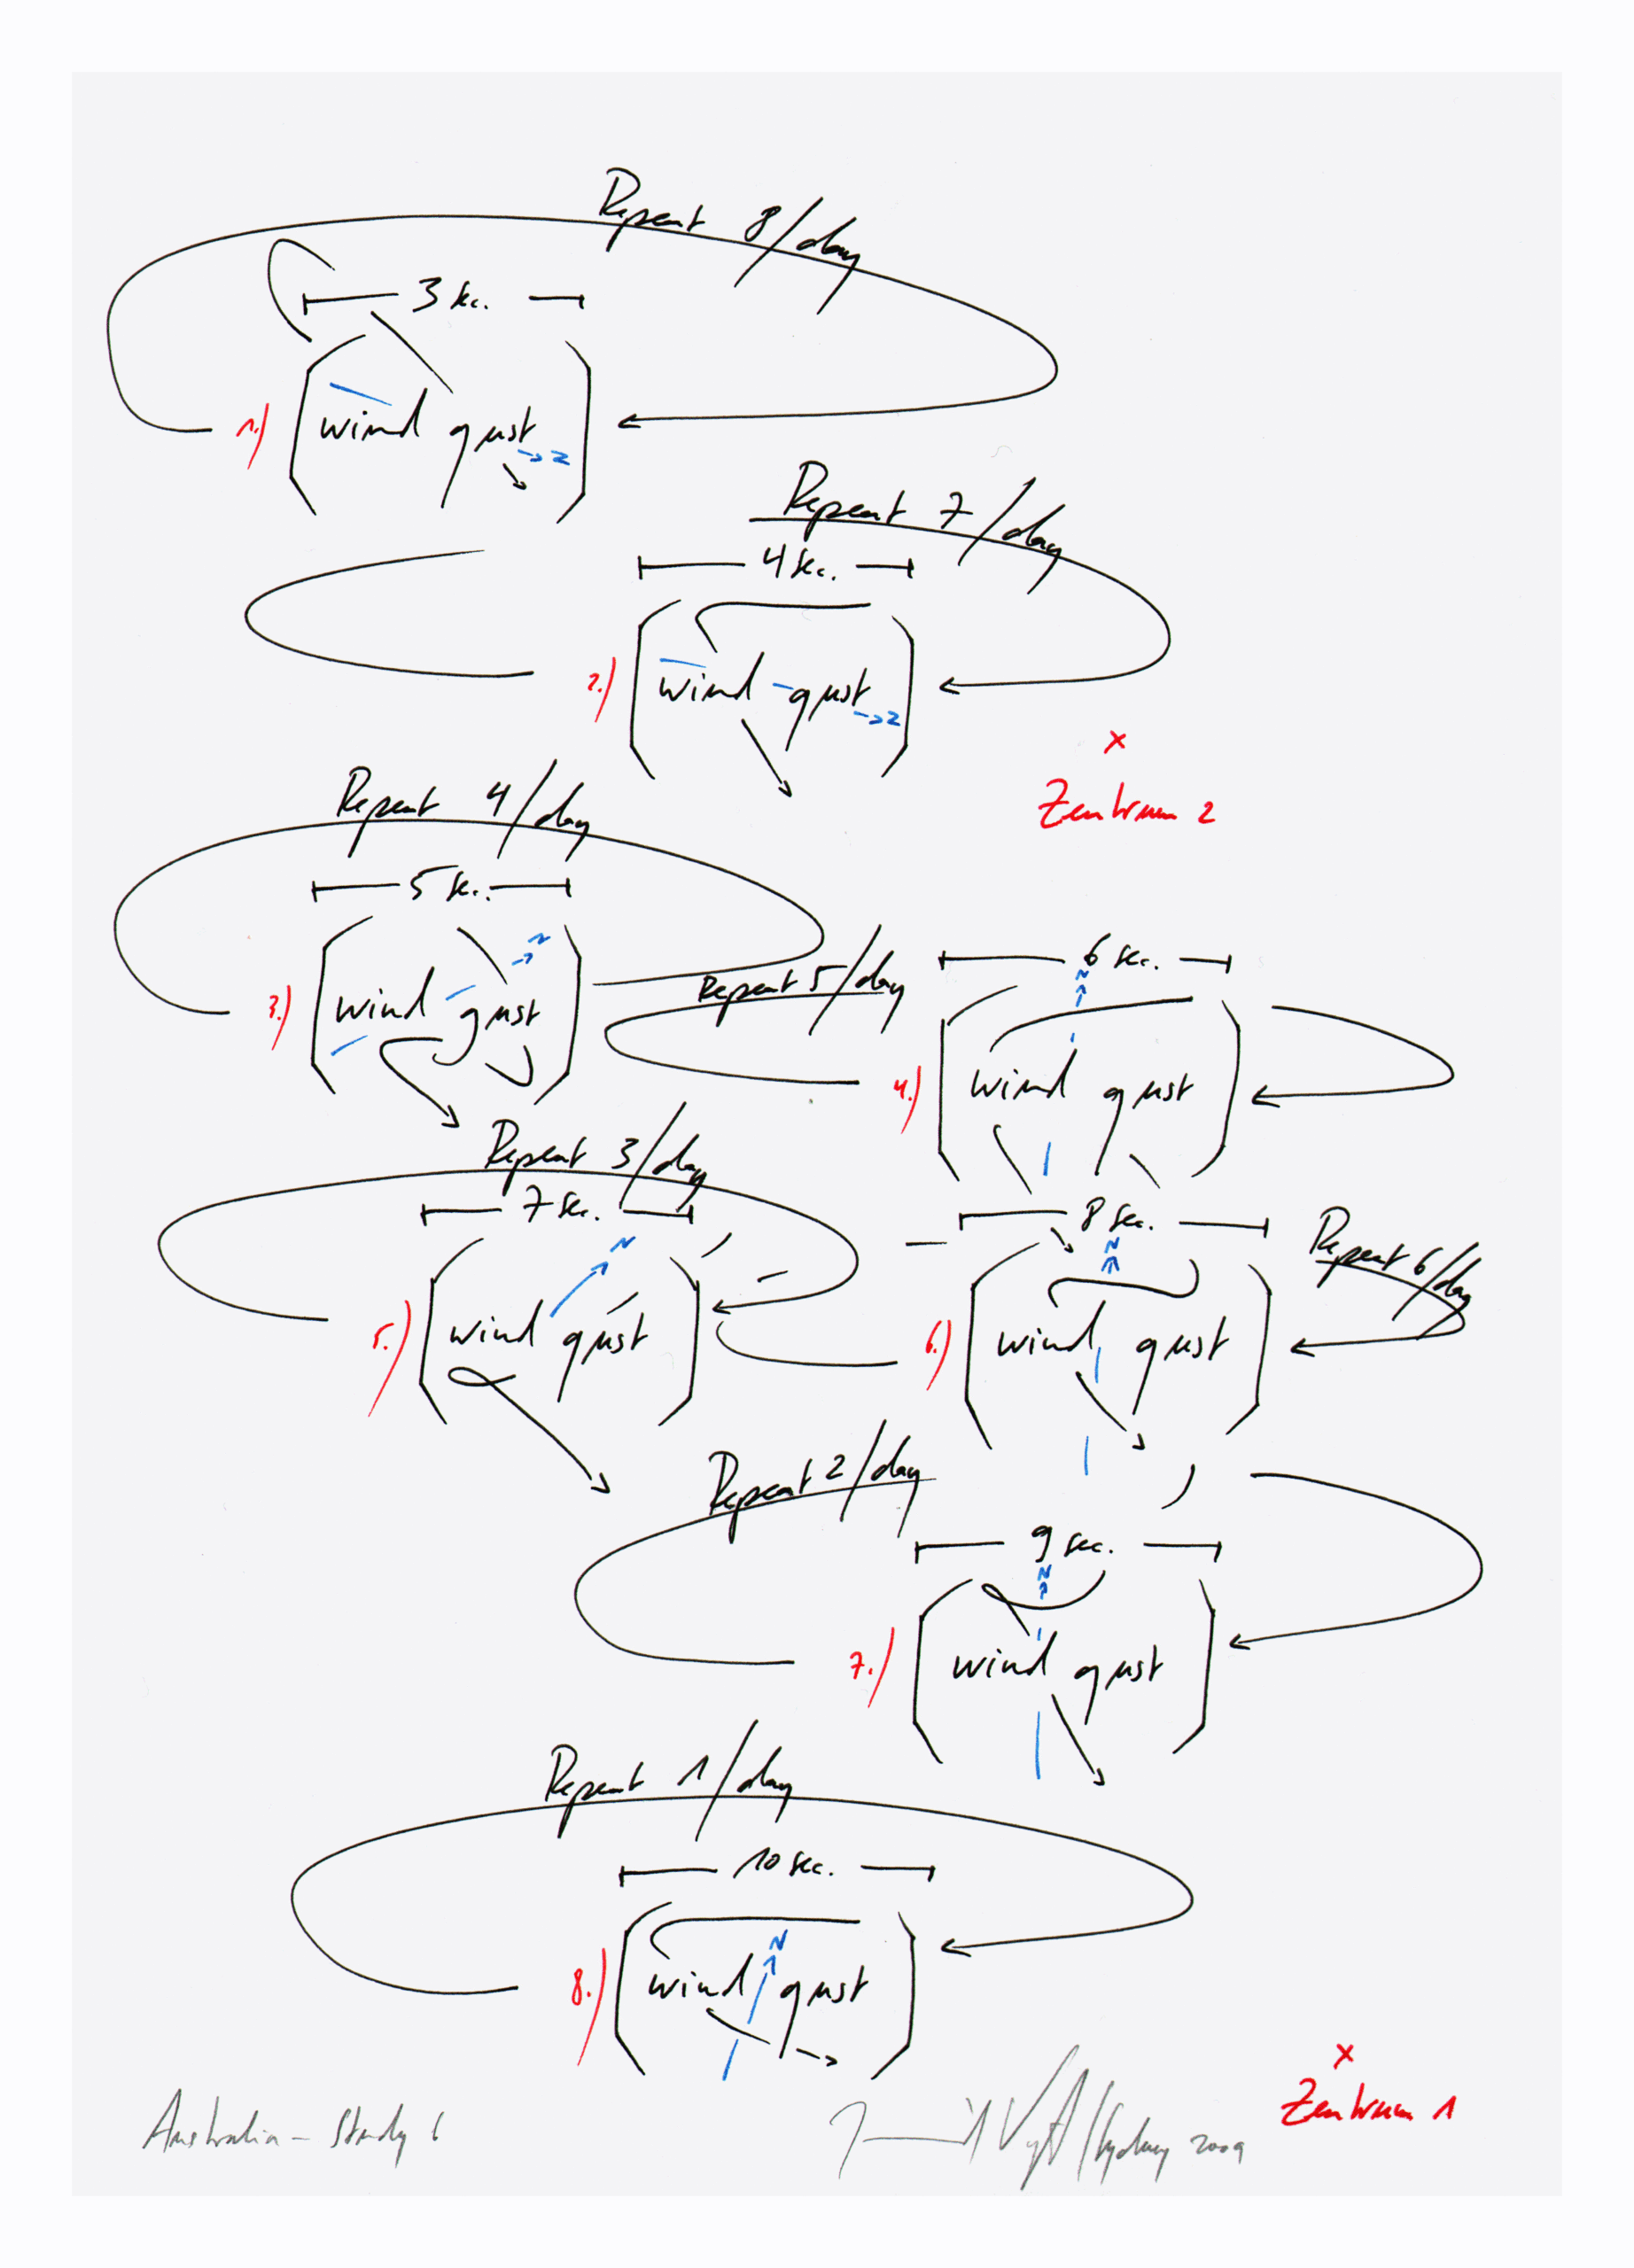 Repeat 8/day
3 sec.
1.) wind gust
N
Repeat 7/day
4 sec.
2.) wind gust
N
× Zentrum 2
Repeat 4/day
5 sec.
N
3.) wind gust
Repeat 5/day
6 sec.
N
4.) wind gust
Repeat 3/day
7 sec.
N
5.) wind gust
Repeat 6/day
8 sec.
N
6.) wind gust
Repeat 2/day
9 sec.
N
7.) wind gust
Repeat 1/day
10 sec.
N
8.) wind gust
× Zentrum 1
Australia – Study 6
/Sydney 2009